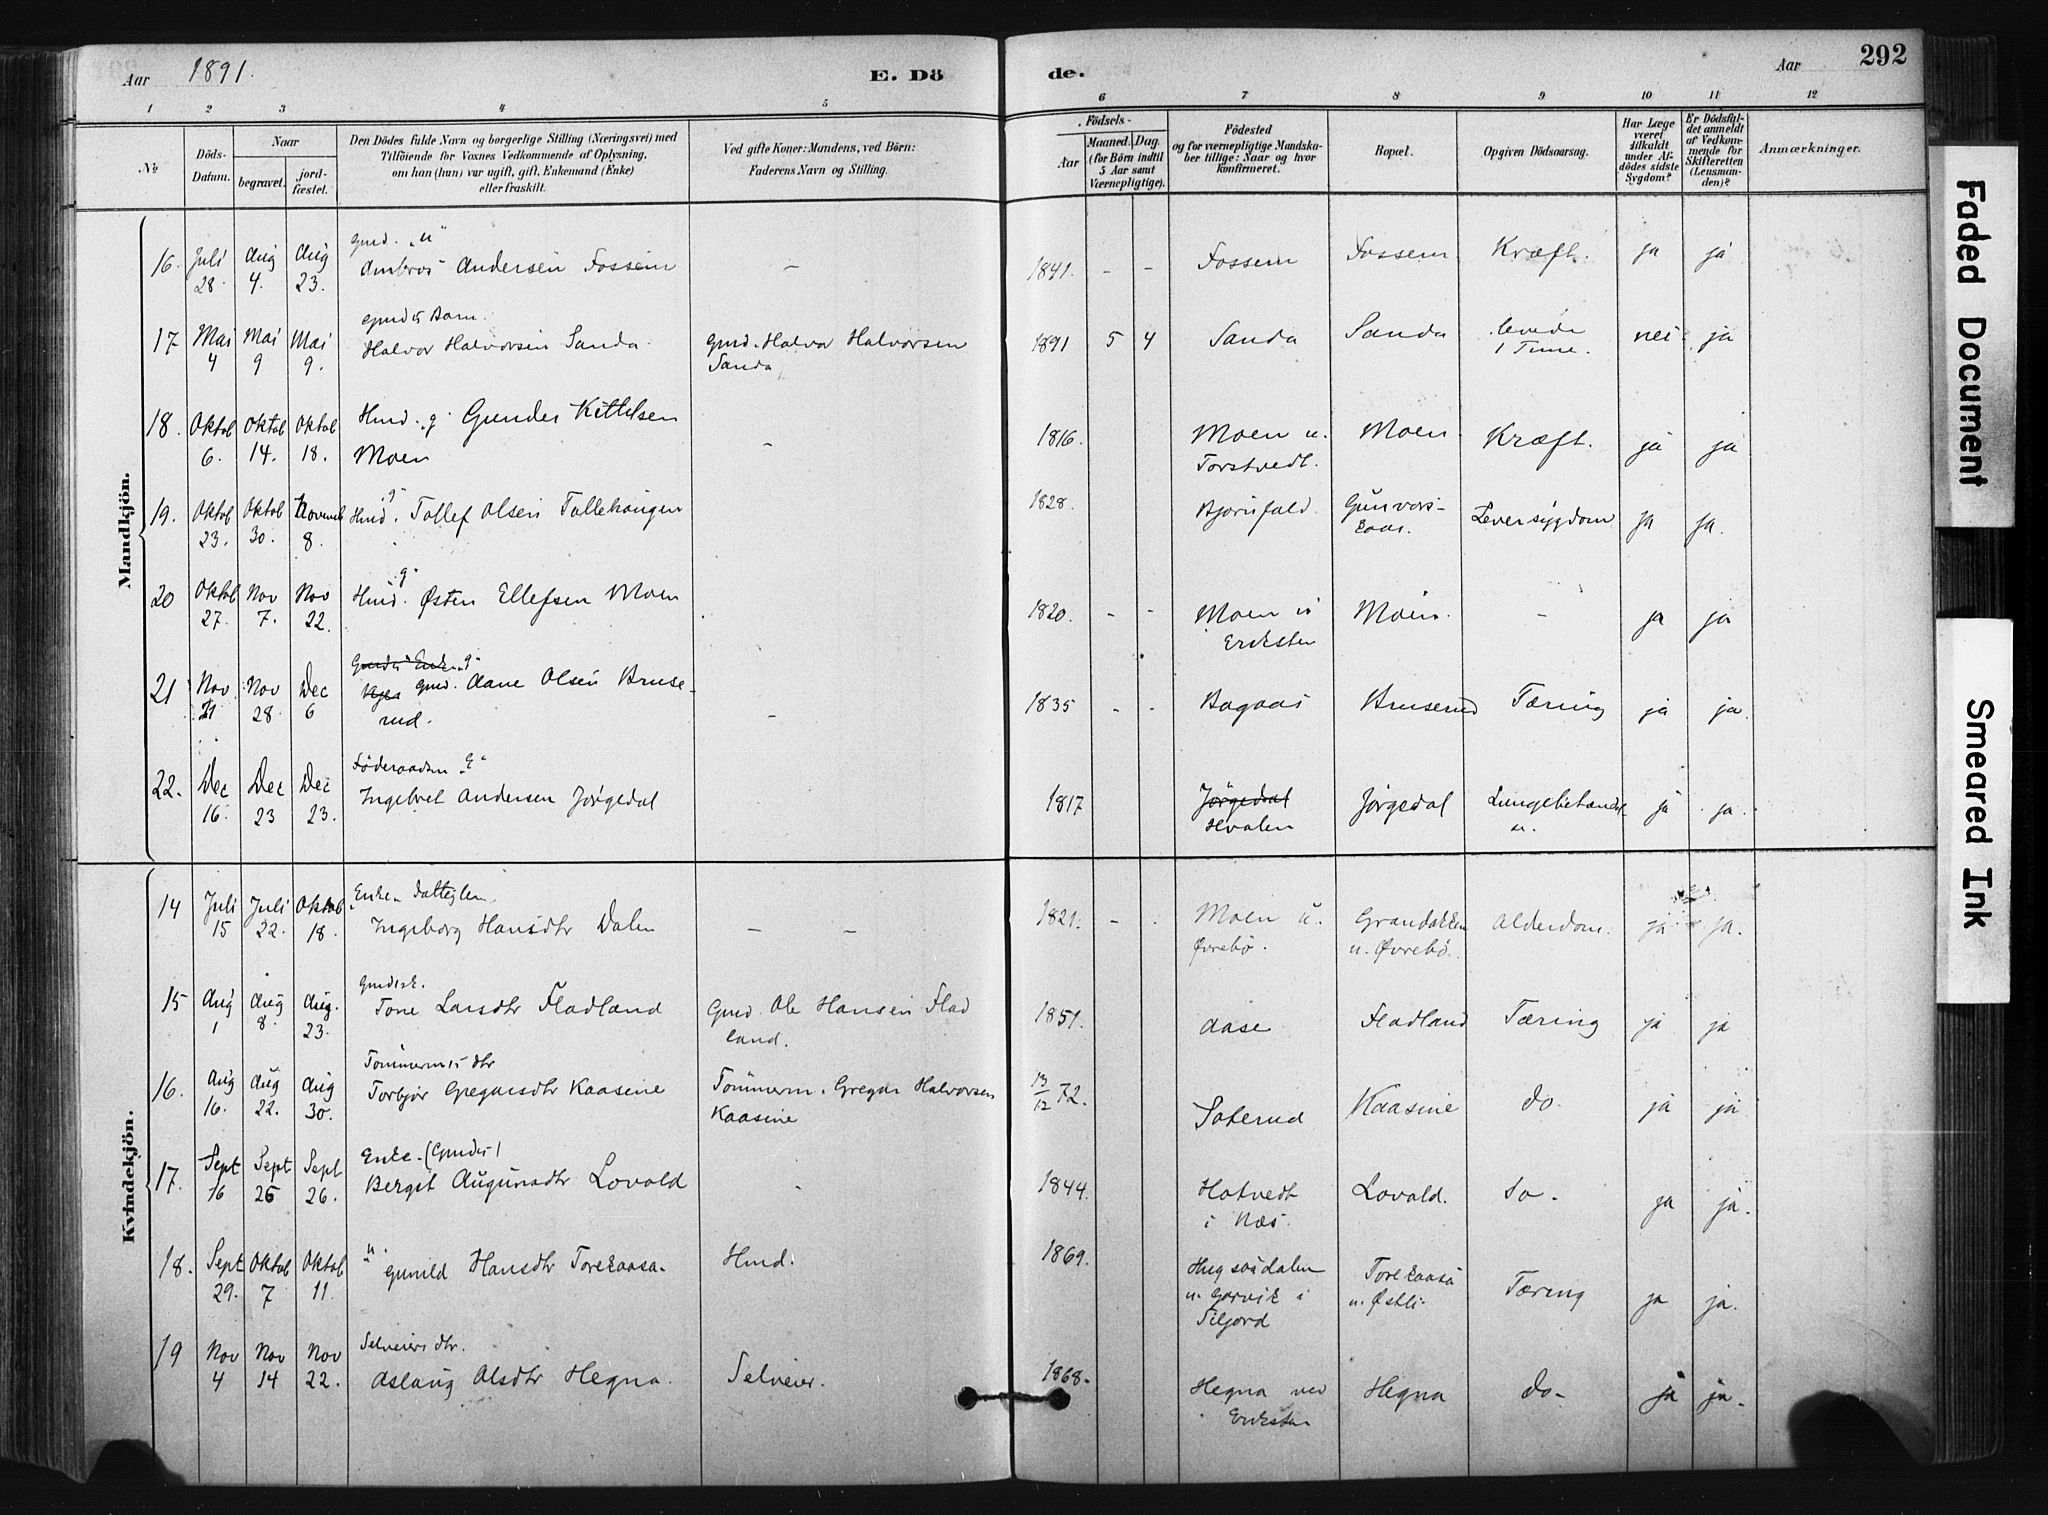 Aar 1891.
E. Dö
de.
Aar
292
1 2 3 4 5
6 7 8 9 10 11 12
No
Döds-Datum.
Naar
begravet.
jord-fæstet.
Den Dödes fulde Navn og borgerlige Stilling (Næringsvei) med
Tilföiende for Voxnes Vedkommende af Oplysning,
om han (hun) var ugift, gift, Enkemand (Enke)
eller fraskilt.
Ved gifte Koner: Mandens, ved Börn:
Faderens Navn og Stilling.
Födsels-
Aar
Maaned. Dag.
(for Börn indtil
5 Aar samt
Værnepligtige).
Födested
og for værnepligtige Mandska-
ber tillige: Naar og hvor
konfirmeret.
Bopæl.
Opgiven Dödsaarsag.
Har Læge
været
tilkaldt
under Af-
dödes sidste
Sygdom?
Er Dödsfal-
det anmeldt
af Vedkom-
mende for
Skifteretten
(Lensman-
den)?
Anmærkninger.
Mandkjön.
Gmd. "u"
16. Juli 28. Aug 4. Aug 23. Ambros Andersen Fossem - 1841. - - Fossem Fossem Kræft. ja ja
Gmds Barn.
17 Mai 4 Mai 9 Mai 9. Halvor Halvorsen Sanda. Gmd. Halvor Halvorsen 1891 5 4 Sanda Sanda levede nei ja
Sanda, 1 Time.
18. Oktob 6. Oktob 14. Oktob 18. Hmd. "g" Gunder Kittilsen - 1816. Moen u. Moen. Kræft. ja ja
Moen Torstvedt.
19. Oktob 23. Oktob 30. Novemb 8. Hmd. "g" Tollef Olsen Tollehaugen 1828. Bjørnfald. Gunvors- Leversygdom ja ja.
kaas.
20 Oktob 27. Nov 7. Nov 22. Hmd. "g" Østen Ellefsen Moen 1820. - - Moen u Moen. - ja ja
Eriksten
Gmds Enke "g"
21 Nov 21 Nov 28. Dec 6 Gmd. Aane Olsen Bruse- - 1835 - - Bagaas Bruserud Tæring ja ja.
rud.
Föderaadsm "E"
22. Dec 16. Dec 23 Dec 23. Ingebret Andersen Jørgedal 1817 Jørgedal Jørgedal Lungebetændel- ja ja.
Hvalen se.
Kvindekjön.
"Enke"
14 Juli 15 Juli 22. Oktob 18. Ingeborg Hansdtr Dalen - - 1821. - - Moen u. Grandokken Alderdom. ja ja.
Øvrebø. u. Øvrebø.
Gmdsk.
15 Aug 1 Aug 8. Aug. 23. Tone Larsdtr Fladland Gmd. Ole Hansen Flad 1851. Aase Fladland Tæring ja ja
land.
Tömmerms dtr
16. Aug 16. Aug 22. Aug 30. Torbjør Gregarsdtr Kaasine Tömmerm. Gregar Halvorsen 13/12 72. Saterud Kaasine do. ja ja
Kaasine
Enke. (Gmds)
17. Sept 16 Sept 26 Sept 26. Bergit Augunsdtr Lovald - 1844. Hatvedt Lovald. do. ja ja.
i Næs.
"u.
18. Sept 29. Oktob 7 Oktob 11. Gunild Hansdtr Torekaasa. Hmd. 1869. Torekaasa Tæring ja ja.
u. Garvik i u. Østli.
Siljord
Selveiers dtr.
19 Nov 4 Nov 14 Nov 22. Aslaug Olsdtr Hegna. Selveier. 1868. Hegna ved Hegna do- ja ja.
Eriksten
Faded Document
Smeared Ink